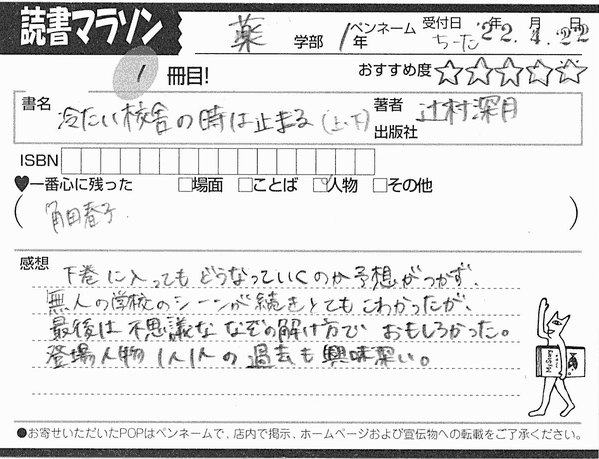 読書マラソン
薬 学部 1年 ペンネーム ちーた 受付日 '22年.4月.22日
1 冊目!
おすすめ度 ☆☆☆☆☆
書名 冷たい校舎の時は止まる(上・下)
著者 辻村深月
出版社
ISBN
♥一番心に残った □場面 □ことば □人物 □その他
(角田春子.)
感想
下巻に入ってもどうなっていくのか予想がつかず、
無人の学校のシーンが続きとてもこわかったが、
最後は不思議ななぞの解け方で おもしろかった。
登場人物1人1人の過去も興味深い。
●お寄せいただいたPOPはペンネームで、店内で掲示、ホームページおよび宣伝物への転載をご了承ください。